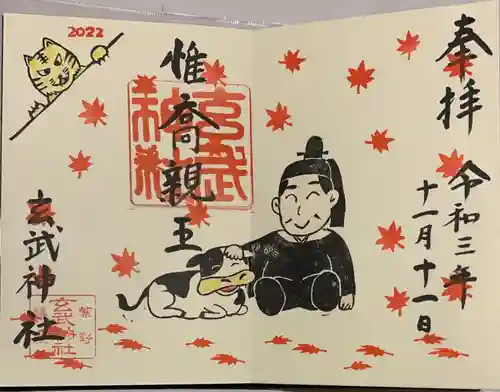 奉拝
令和三年
十一月十一日
惟喬親王
玄武神社
2022
玄武神社
紫野
玄武神社